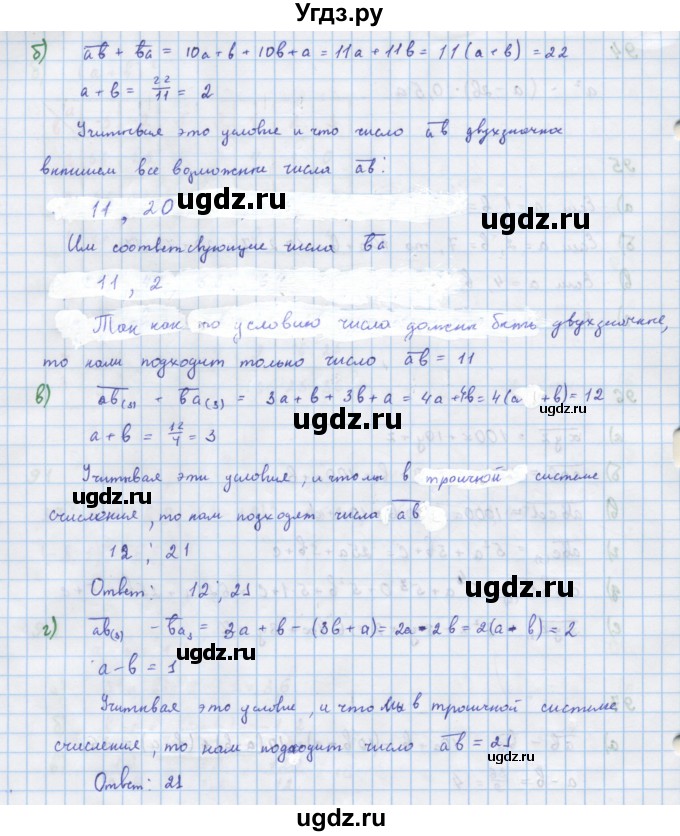 Угдз.ру
б) ab + ba = 10a + b + 10b + a = 11a + 11b = 11(a + b) = 22
a + b = 22/11 = 2
Учитывая это условие и что число ab двухзначное
впишем все возможные числа ab:
ugdz.ru
ugdz.ru
11, 20
Им соответствующие числа ba
ugdz.ru
ugdz.ru
11, 2
Так как по условию числа должны быть двухзначные,
то нам подходит только число ab = 11
в) ab(3) + ba(3) = 3a + b + 3b + a = 4a + 4b = 4(a + b) = 12
ugdz.ru
ugdz.ru
a + b = 12/4 = 3
Учитывая эти условие, и что мы в троичной системе
ugdz.ru
ugdz.ru
счисления, то нам подходят числа ab
12; 21
Ответ: 12; 21
ugdz.ru
ugdz.ru
г) ab(3) - ba3 = 3a + b - (3b + a) = 2a - 2b = 2(a - b) = 2
ugdz.ru
ugdz.ru
a - b = 1
Учитывая это условие, и что мы в троичной системе
счисления, то нам подходит число ab = 21
ugdz.ru
ugdz.ru
Ответ: 21
ugdz.ru
ugdz.ru